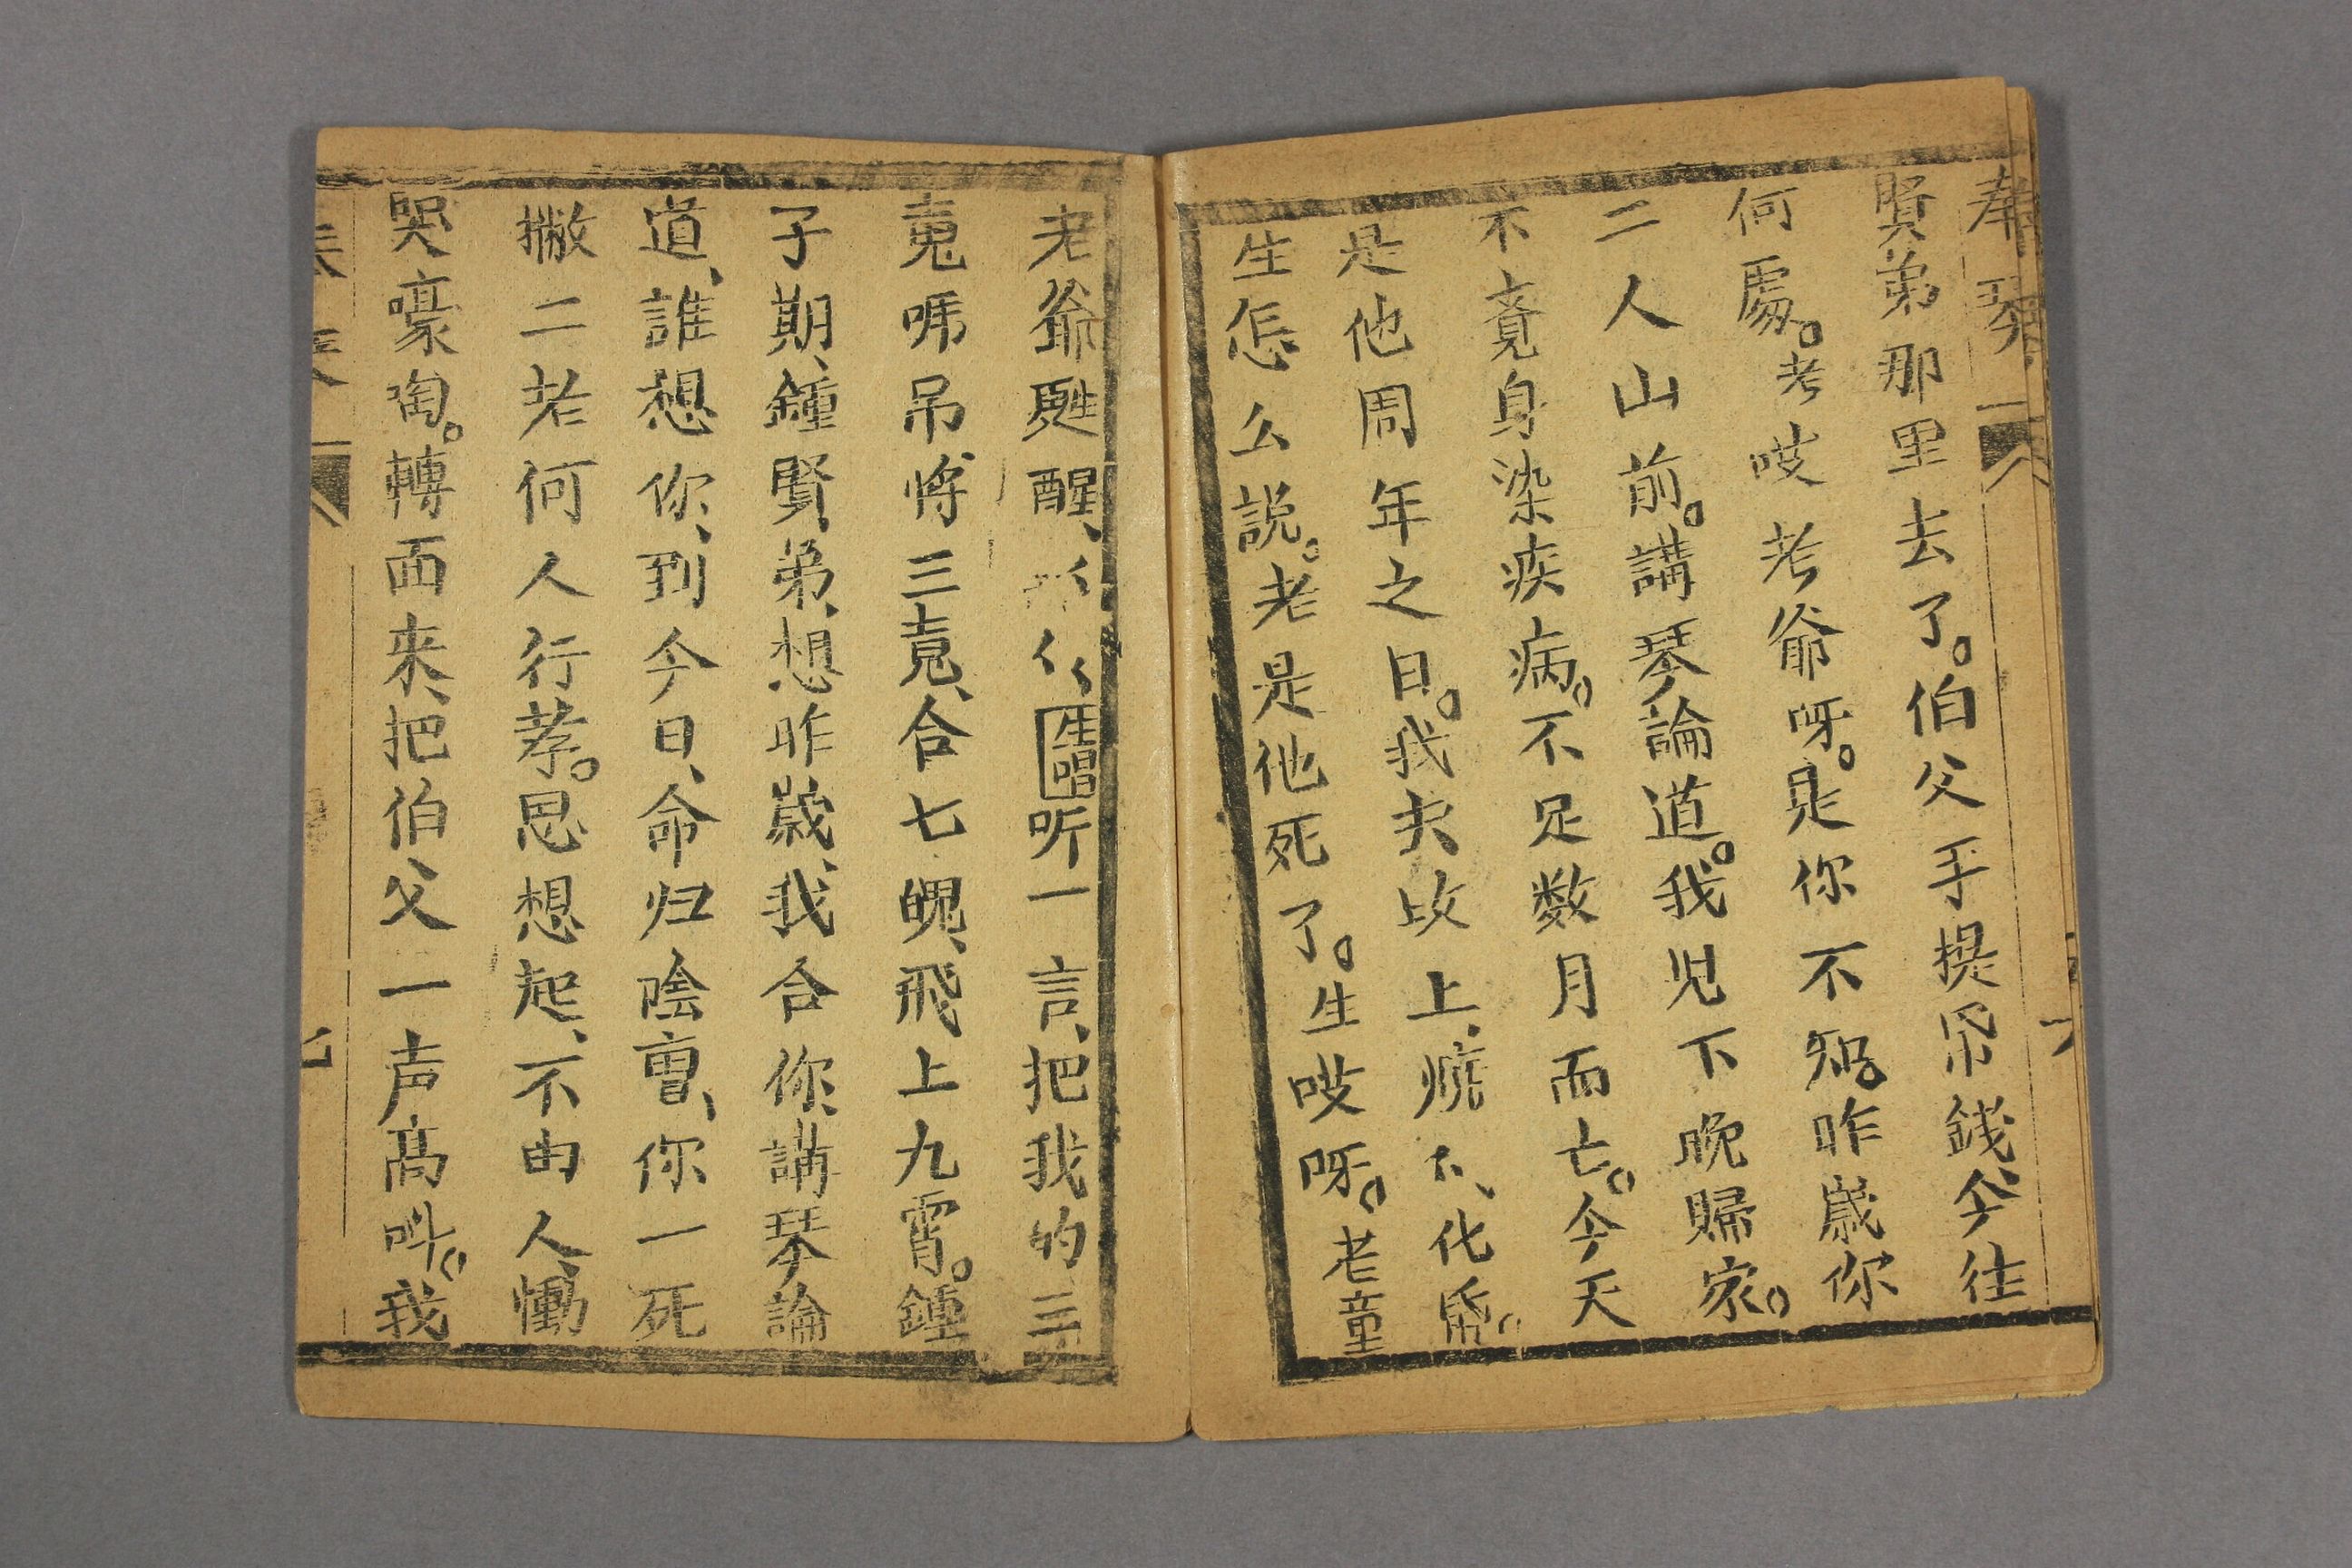 賢弟那里去了。伯父手提吊錢仐往
何處。考哎考爺呀。是你不知。昨歲你
二人山前。講琴論道。我児下晚歸家。
不竟身染疾病。不足数月而亡。今天
是他周年之日。我夫坟上、燒不、化昏。
生怎么説。老是他死了。生哎呀。老童
老爺甦醒、
生唱 听一言、把我的三
䰟嗎吊將三䰟、合七魄、飛上九霄。鍾
子期、鍾賢、弟、想昨歲、我合你、講琴論
道、誰想你、到今日、命归陰曹、你一死
撇二老何人行孝。思想起、不由人、慟
哭嚎啕。轉面來、把伯父一声高叫。我